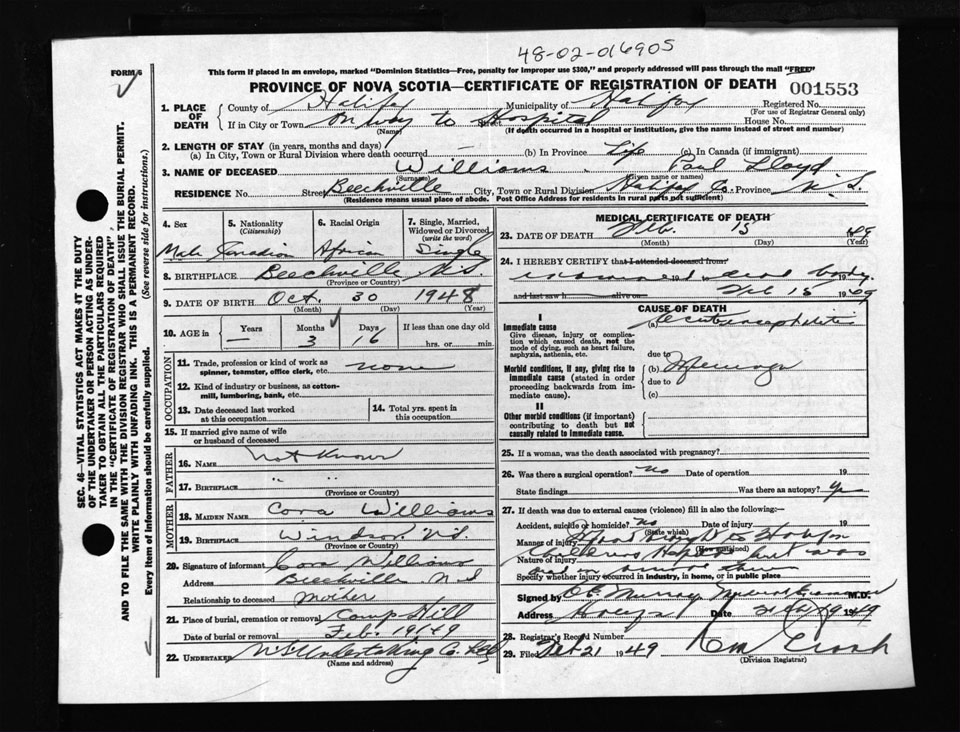 48-02-016905
FORM 6
This form if placed in an envelope, marked "Dominion Statistics—Free, penalty for improper use $300," and properly addressed will pass through the mail "FREE"
PROVINCE OF NOVA SCOTIA—CERTIFICATE OF REGISTRATION OF DEATH 001553
SEC. 46—VITAL STATISTICS ACT MAKES IT THE DUTY
OF THE UNDERTAKER OR PERSON ACTING AS UNDER-
TAKER TO OBTAIN ALL THE PARTICULARS REQUIRED
IN THE "CERTIFICATE OF REGISTRATION OF DEATH",
AND TO FILE THE SAME WITH THE DIVISION REGISTRAR WHO SHALL ISSUE THE BURIAL PERMIT.
WRITE PLAINLY WITH UNFADING INK. THIS IS A PERMANENT RECORD.
Every item of information should be carefully supplied. (See reverse side for instructions.)
1. PLACE OF DEATH
County of Halifax Municipality of Halifax Registered No.
(For use of Registrar General only)
If in City or Town On way to Hospital House No.
(Name) (If death occurred in a hospital or institution, give the name instead of street and number)
2. LENGTH OF STAY (in years, months and days)
(a) In City, Town or Rural Division where death occurred (b) In Province Life (c) In Canada (if immigrant)
3. NAME OF DECEASED Williams Paul Lloyd
(Surname) (Given name or names)
RESIDENCE No. Street Beechville City, Town or Rural Division Halifax Co. Province N.S.
(Residence means usual place of abode. Post Office Address for residents in rural parts not sufficient)
4. Sex 5. Nationality (Citizenship) 6. Racial Origin 7. Single, Married, Widowed or Divorced (write the word)
Male Canadian African Single
8. BIRTHPLACE Beechville N.S.
(Province or Country)
9. DATE OF BIRTH Oct. 30 1948
(Month) (Day) (Year)
10. AGE in Years Months Days If less than one day old
— 3 16 hrs. or min.
OCCUPATION
11. Trade, profession or kind of work as spinner, teamster, office clerk, etc. none
12. Kind of industry or business, as cotton-mill, lumbering, bank, etc.
13. Date deceased last worked at this occupation
14. Total yrs. spent in this occupation
15. If married give name of wife or husband of deceased
FATHER
16. NAME Not Known
17. BIRTHPLACE " "
(Province or Country)
MOTHER
18. MAIDEN NAME Cora Williams
19. BIRTHPLACE Windsor N.S.
(Province or Country)
20. Signature of informant Cora Williams
Address Beechville N.S
Relationship to deceased mother
21. Place of burial, cremation or removal Camp Hill
Date of burial or removal Feb. 19 1949
22. UNDERTAKER N.S. Undertaking Co. Ltd
(Name and address)
MEDICAL CERTIFICATE OF DEATH
23. DATE OF DEATH Feb. 15 1949
(Month) (Day) (Year)
24. I HEREBY CERTIFY that I attended deceased from:
examined dead body
and last saw h alive on Feb 15 1949
CAUSE OF DEATH
I
Immediate cause (a) Acute encephalitis
Give disease, injury or complication which caused death, not the mode of dying, such as heart failure, asphyxia, asthenia, etc.
due to
Morbid conditions, if any, giving rise to immediate cause (stated in order proceeding backwards from immediate cause).
(b)
due to
(c)
II
Other morbid conditions (if important) contributing to death but not causally related to immediate cause.
25. If a woman, was the death associated with pregnancy?
26. Was there a surgical operation? no Date of operation 19
State findings Was there an autopsy? Yes
27. If death was due to external causes (violence) fill in also the following:
Accident, suicide or homicide? no Date of injury 19
(State which)
Manner of injury
(How sustained)
Nature of injury Childrens but was
Specify whether injury occurred in industry, in home, or in public place
Signed by O.E. Murray Medical Examiner M.D.
Address Date 1949
28. Registrar's Record Number
29. Filed Feb 21 1949
(Division Registrar)